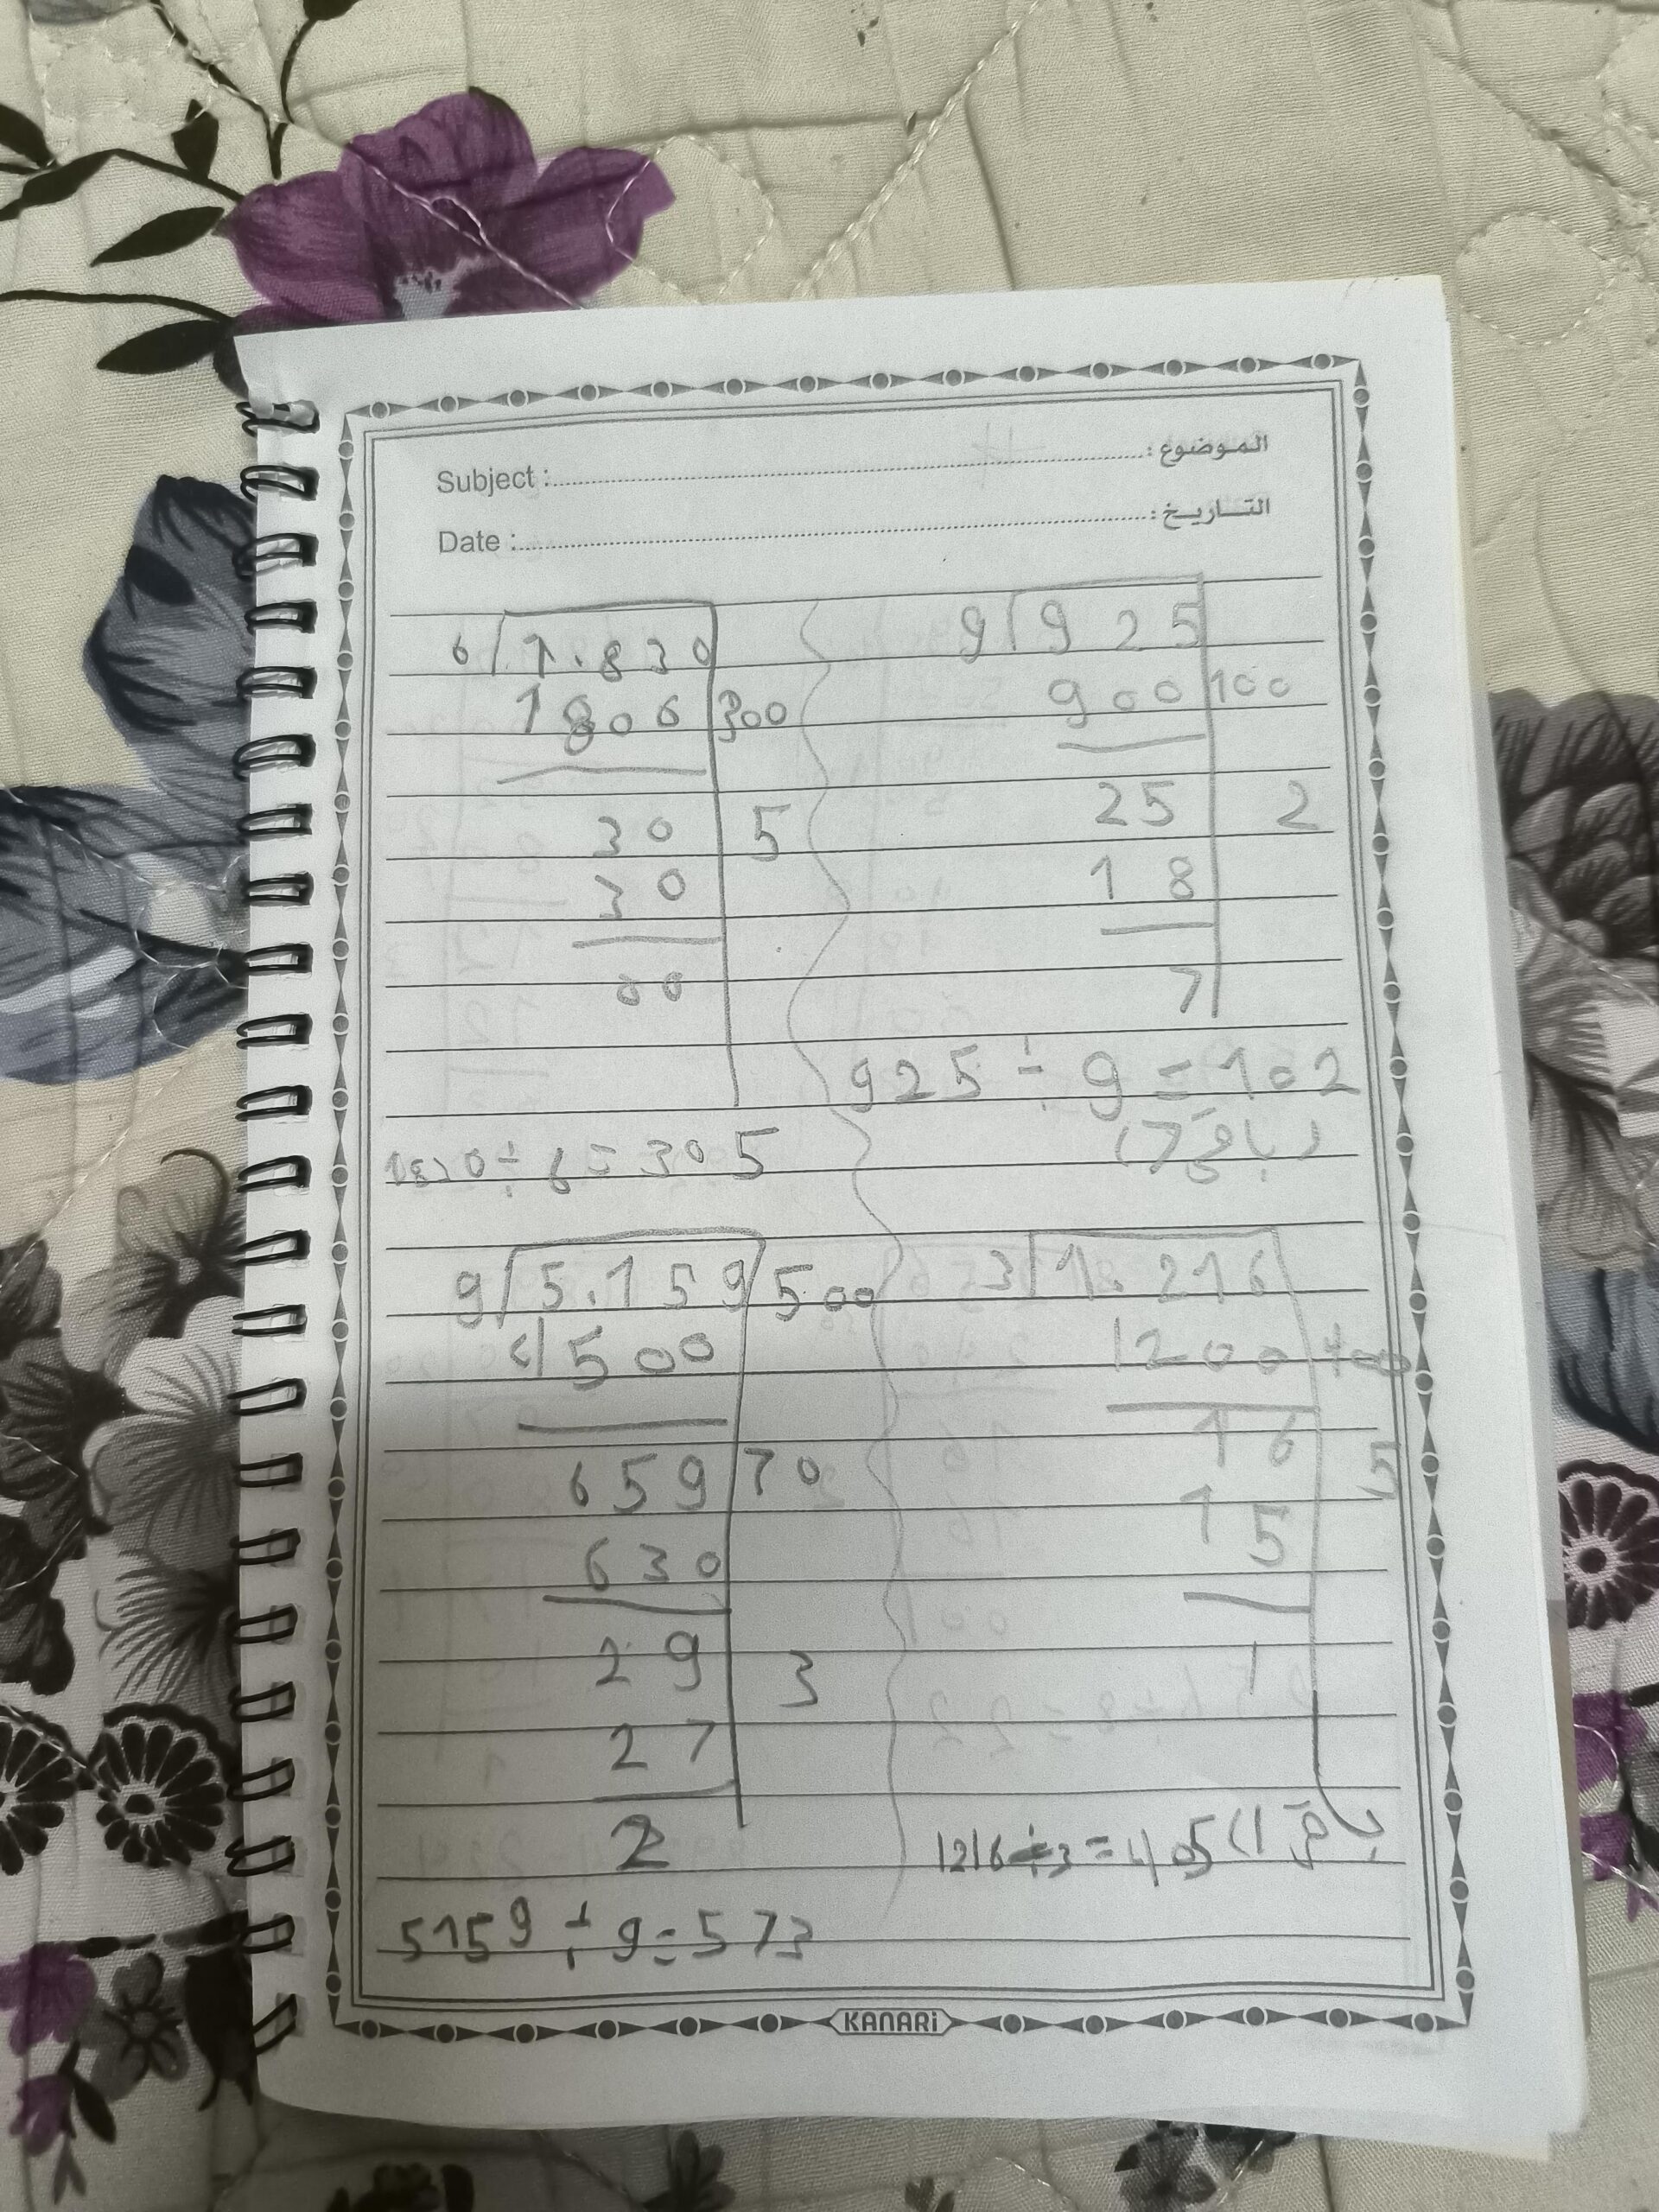 Subject : الموضوع :
Date : التاريخ :
6 1.830
1806 300
30 5
30
00
1830 ÷ 6 = 305
9 925
900 100
25 2
18
7
925 ÷ 9 = 102
(باقي 7)
9 5.159 500
4500
659 70
630
29 3
27
2
5159 ÷ 9 = 573
3 1.216
1200 400
16 5
15
1
1216 ÷ 3 = 405 (باقي 1
KANARi